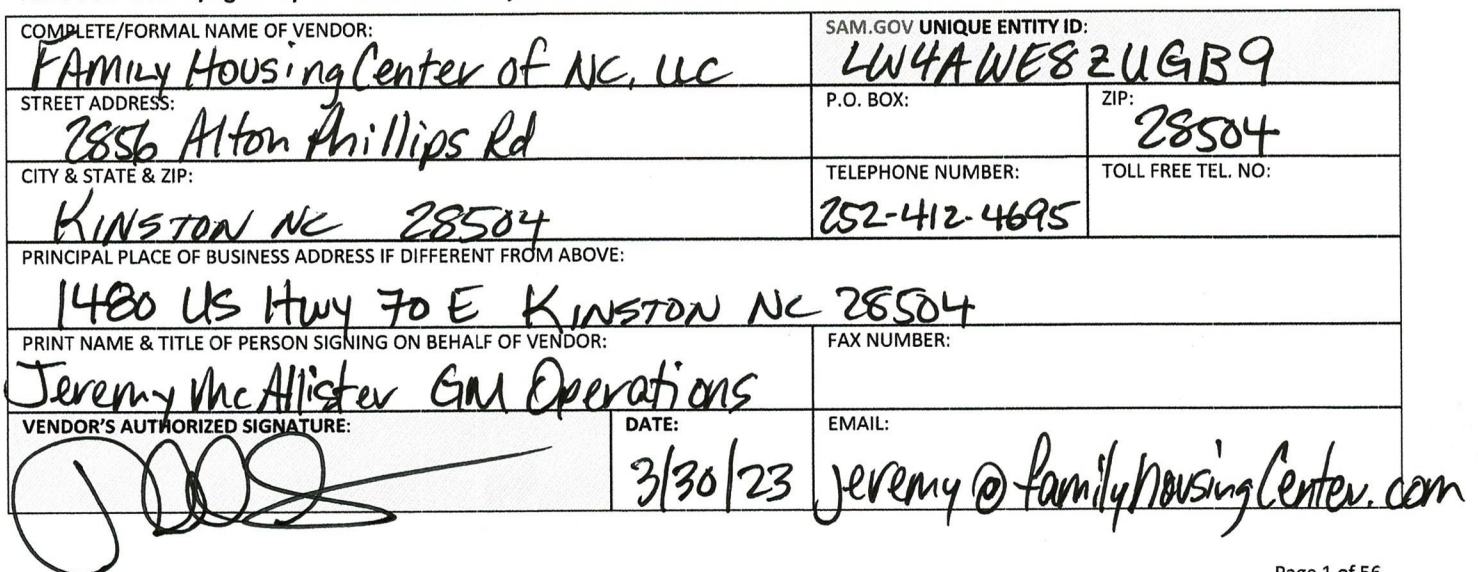 COMPLETE/FORMAL NAME OF VENDOR:
FAMILY Housing Center of NC, LLC
SAM.GOV UNIQUE ENTITY ID:
LW4AWE8ZUGB9
STREET ADDRESS:
2856 Alton Phillips Rd
P.O. BOX:
ZIP:
28504
CITY & STATE & ZIP:
KINSTON NC 28504
TELEPHONE NUMBER:
252-412-4695
TOLL FREE TEL. NO:
PRINCIPAL PLACE OF BUSINESS ADDRESS IF DIFFERENT FROM ABOVE:
1480 US Hwy 70 E KINSTON NC 28504
PRINT NAME & TITLE OF PERSON SIGNING ON BEHALF OF VENDOR:
Jeremy McAllister GM Operations
FAX NUMBER:
VENDOR'S AUTHORIZED SIGNATURE:
DATE:
3/30/23
EMAIL:
jeremy@familyhousingCenter.com
Page 1 of 56